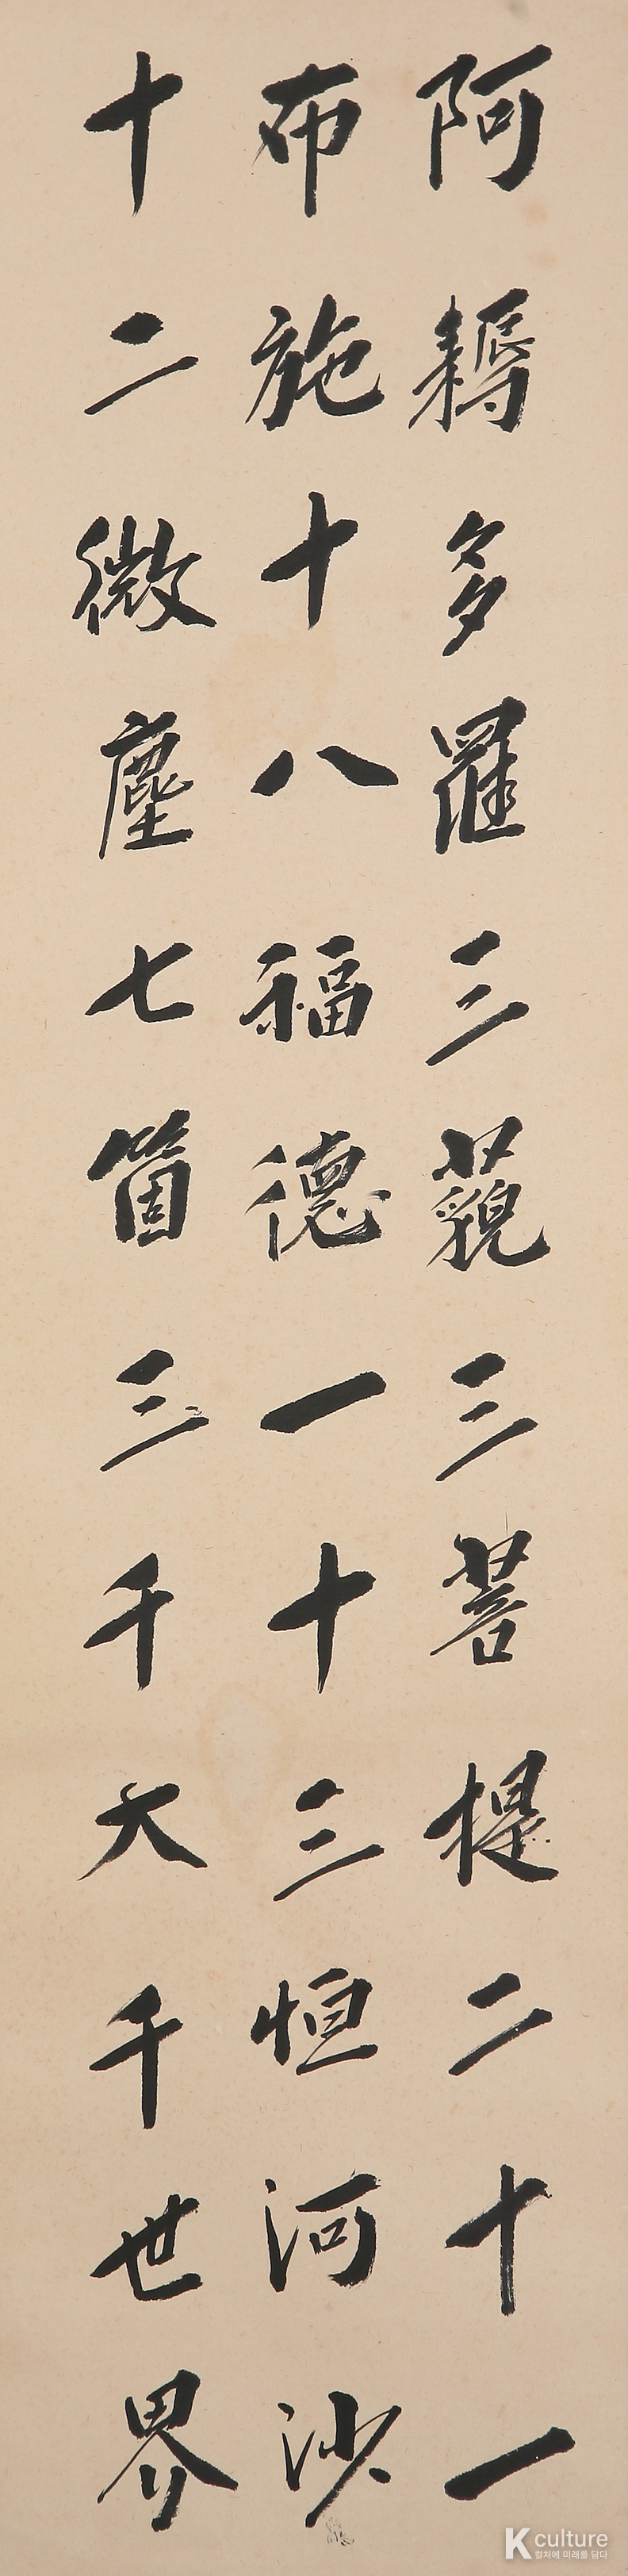 阿耨多羅三藐三菩提二十一
布施十八福德一十三恒河沙
十二微塵七箇三千大千世界
K culture
컬처에 미래를 담다